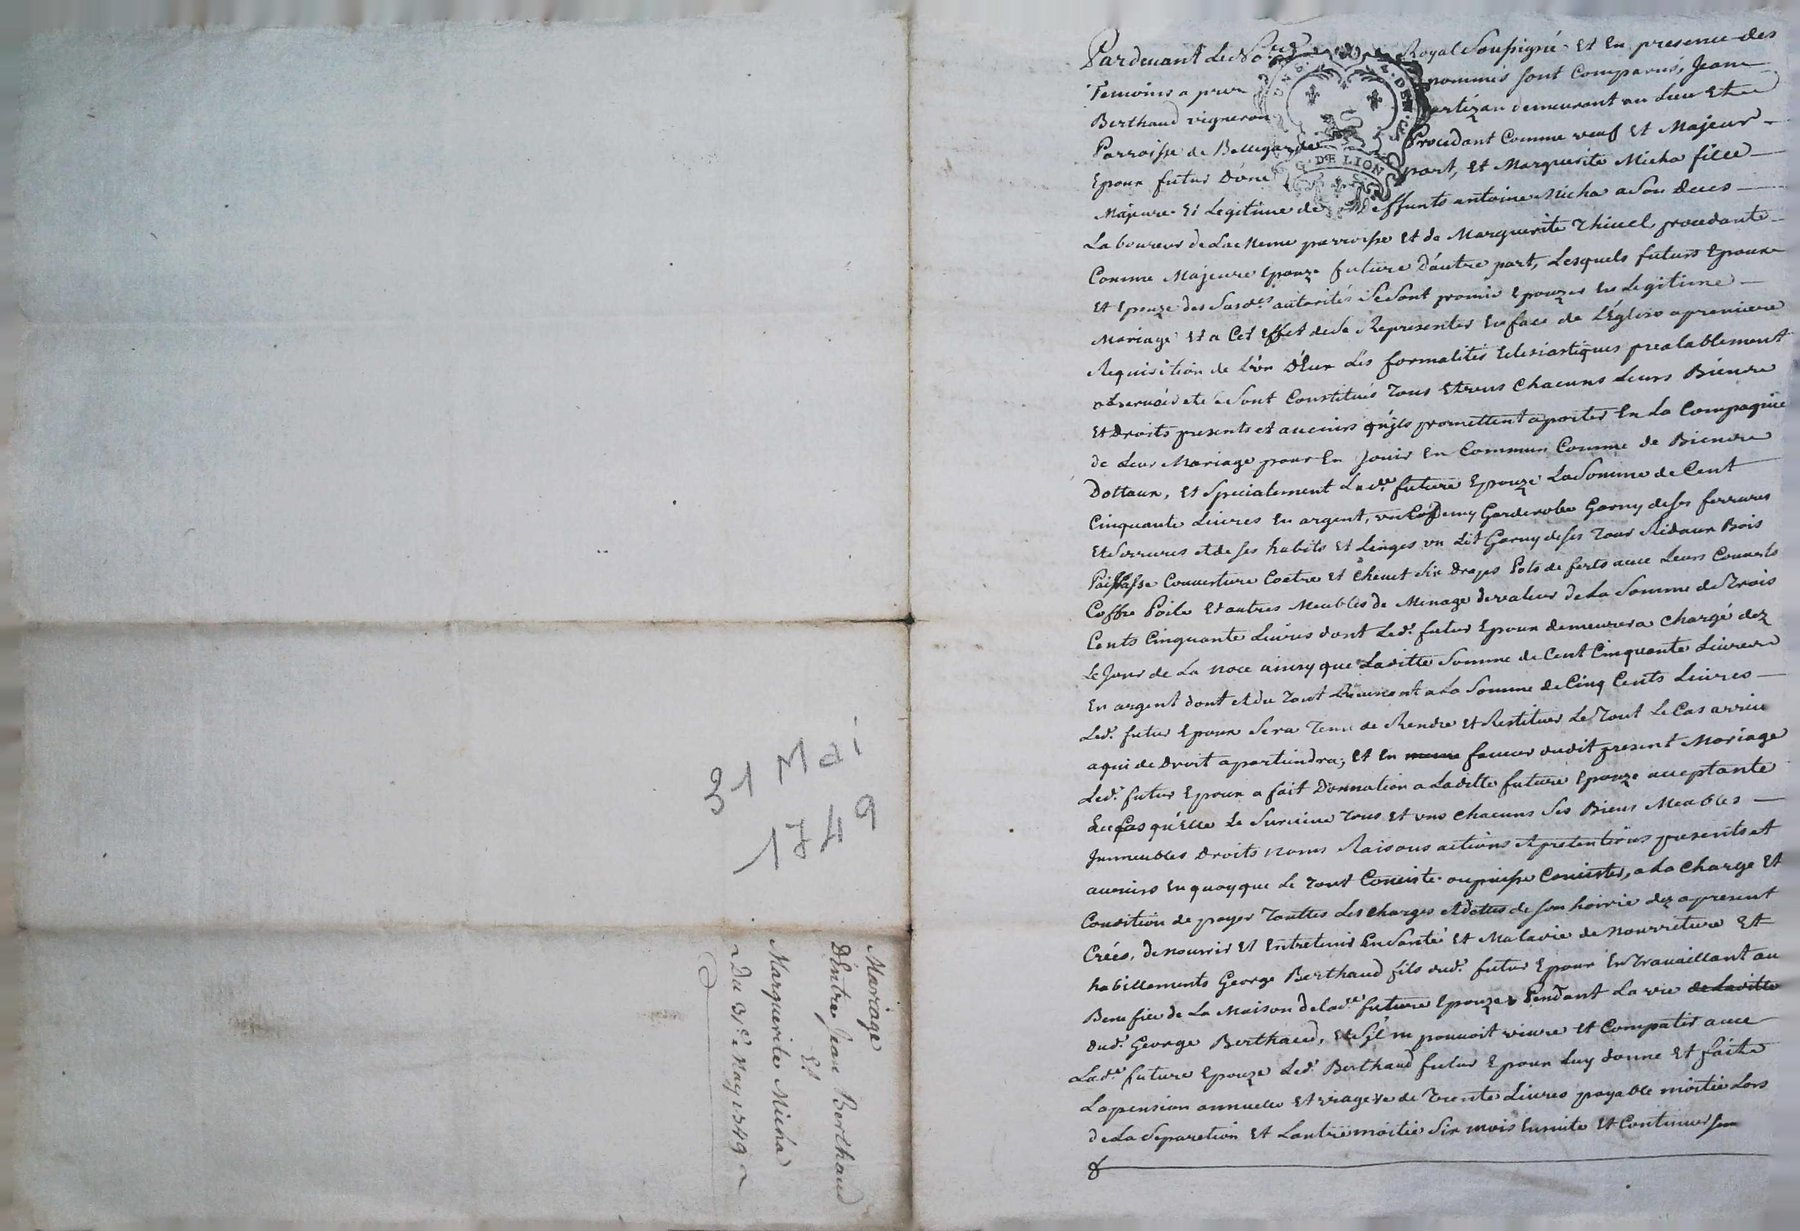 31 Mai
1749
Mariage
D'Entre Jean Berthaud
Et
Marguerite Micha
Du 31e May 1749
Pardevant Le No.re Royal Soussigné Et En presence des
Temoins a pres nommés sont Comparus, Jean
Berthaud vigneron demeurant au Lieu Et
Parroisse de Bellegarde Procedant Comme veuf Et Majeur
Epoux futur D'une part, Et Marguerite Micha fille
Majeure Et Legitime de deffunts antoine Micha a Son Deces
Laboureur de La meme parroisse Et de Marguerite Thiuel procedante
Comme Majeure Epouze future D'autre part, Lesquels futurs Epoux
Et Epouze des Susd.es autorités Se Sont promis Epouzer En Legitime
Mariage Et a Cet Effet de Se Representer En face de L'Eglise a premiere
Requisition de L'un D'Eux Les formalités Eclesiastiques prealablement
observées Se Sont Constitués Tous Et uns Chacuns Leurs Biens
Et Droits presents et avenirs qu'ils promettent aporter En La Compagnie
de Leur Mariage pour En Jouir En Commun Comme de Biens
Dottaux, Et Specialement Lad.e future Epouze La Somme de Cent
Cinquante Livres En argent, un demy Garderobe Garny de Ses ferrures
Et Serrures et de ses habits Et Linges un Lit Garny de Ses Tour Rideaux Bois
Paillasse Couverture Coetre Et Chevet Six Draps Pots de ferts avec Leurs Couverts
Coffre Poile Et autres Meubles de Menage de valeur de La Somme de Trois
Cents Cinquante Livres dont Led. futur Epoux demeurera Chargé dez
Le Jour de La noce ainsy que Laditte Somme de Cent Cinquante Livres
En argent dont Et du Tout Revenant a La Somme de Cinq Cents Livres
Led. futur Epoux Sera Tenu de Rendre Et Restituer Le Tout Le Cas arrivé
a qui de Droit apartiendra, Et En faveur dudit present Mariage
Led. futur Epoux a fait Donnation a Laditte future Epouze acceptante
En Cas qu'Elle Le Survive Tous Et uns Chacuns Ses Biens Meubles
Immeubles Droits noms Raisons actions Et pretentions presents et
avenirs En quoy que Le Tout Conciste ou puisse Concister, a La Charge Et
Condition de payer Touttes Les Charges et dettes de son hoirie dez a present
Créés, de nourrir Et Entretenir En Santé Et Maladie de nourriture Et
habillements George Berthaud fils dud. futur Epoux En Travaillant au
Benefice de La Maison de Lad.e future Epouze Pendant La vie de Laditte
dud. George Berthaud, Et S'il ne pouvoit vivre Et Compatir avec
Lad.e future Epouze Led. Berthaud futur Epoux Luy donne Et faite
La pension annuelle Et viagere de Trente Livres payable moitié Lors
de La Separation Et L'autre moitié Six mois Ensuite Et Continuer
G. DE LION